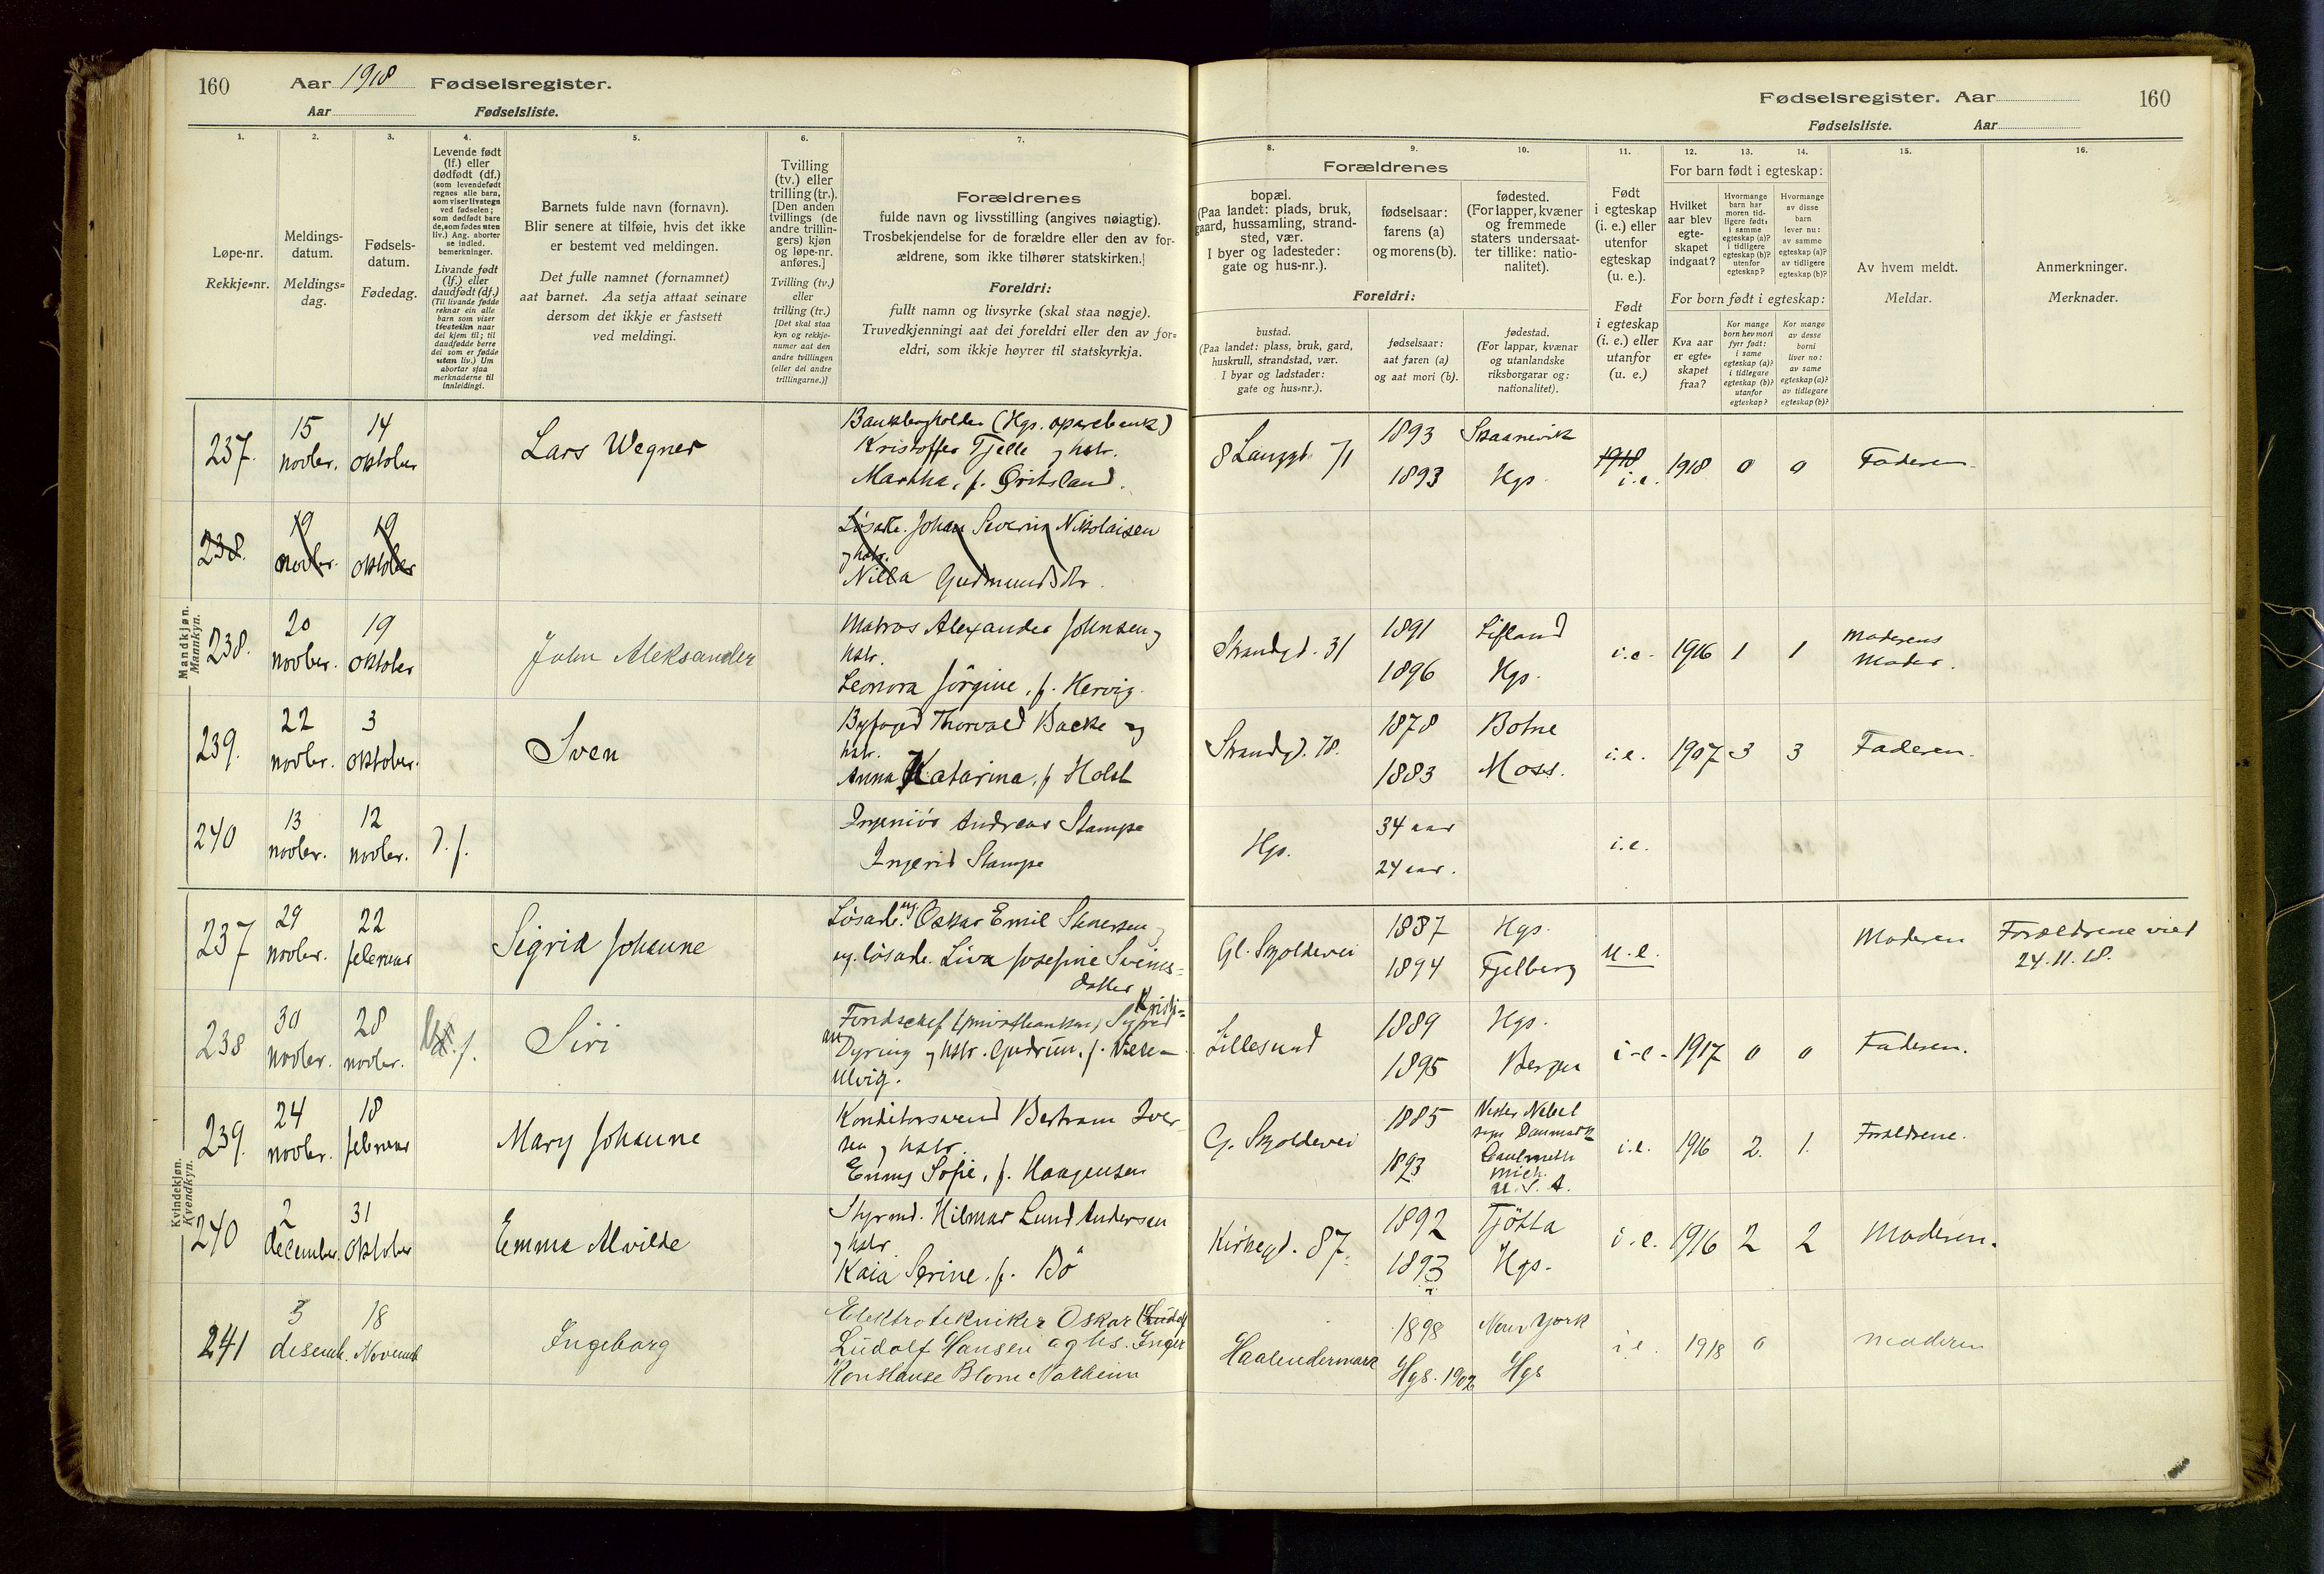 160
Aar 1918 Fødselsregister.
Aar
Fødselsliste.
1.
2.
3.
4.
5.
6.
7.
Løpe-nr.
Rekkje=nr.
Meldings-
datum.
Meldings=
dag.
Fødsels-
datum.
Fødedag.
Levende født
(lf.) eller
dødfødt (df.)
(som levendefødt
regnes alle barn,
som viser livstegn
ved fødselen;
som dødfødt bare
de, som fødes uten
liv.) Ang. aborter
se indled.
bemerkninger.
Livande født
(lf.) eller
daudfødt (df.)
(Til livande fødde
reknar ein alle
born som viser
livsteikn naar
dei kjem til; til
daudfødde berre
dei som er fødde
utan liv.) Um
abortar sjaa
merknaderne til
innleidingi.
Barnets fulde navn (fornavn).
Blir senere at tilføie, hvis det ikke
er bestemt ved meldingen.
Det fulle namnet (fornamnet)
aat barnet. Aa setja attaat seinare
dersom det ikkje er fastsett
ved meldingi.
Tvilling
(tv.) eller
trilling (tr.).
[Den anden
tvillings (de
andre trillin-
gers) kjøn
og løpe-nr.
anføres.]
Tvilling (tv.)
eller
trilling (tr.)
[Det skal staa
kyn og rekkje-
numer aat den
andre tvillingen
(eller dei andre
trillingarne.)]
Forældrenes
fulde navn og livsstilling (angives nøiagtig).
Trosbekjendelse for de forældre eller den av for-
ældrene, som ikke tilhører statskirken.
Foreldri:
fullt namn og livsyrke (skal staa nøgje).
Truvedkjenningi aat dei foreldri eller den av for-
eldri, som ikkje høyrer til statskyrkja.
Fødselsregister. Aar
160
Fødselsliste. Aar
8.
9.
10.
11.
12.
13.
14.
15.
16.
Forældrenes
bopæl.
(Paa landet: plads, bruk,
gaard, hussamling, strand-
sted, vær.
I byer og ladesteder:
gate og hus-nr.).
fødselsaar:
farens (a)
og morens (b).
fødested.
(For lapper, kvæner
og fremmede
staters undersaat-
ter tillike: natio-
nalitet).
Foreldri:
bustad.
(Paa landet: plass, bruk, gard,
huskrull, strandstad, vær.
I byar og ladstader:
gate og hus=nr.).
fødselsaar:
aat faren (a)
og aat mori (b).
fødestad.
(For lappar, kvænar
og utanlandske
riksborgarar og:
nationalitet).
Født
i egteskap
(i. e.) eller
utenfor
egteskap
(u. e.).
Født
i egteskap
(i. e.) eller
utanfor
(u. e.)
For barn født i egteskap:
Hvilket
aar blev
egte-
skapet
indgaat?
Hvormange
barn har
moren tid-
ligere født:
i samme
egteskap (a)?
i tidligere
egteskap (b)?
utenfor
egteskap?
Hvormange
av disse
barn
lever nu:
av samme
egteskap (a)?
av tidligere
egteskap (b)?
For born født i egteskap:
Kva aar
er egte=
skapet
fraa?
Kor mange
born hev mori
fyrr født:
i same
egteskap (a)?
i tidlegare
egteskap (b)?
utanfor
egteskap?
Kor mange
av desse
borni
liver no:
av same
egteskap (a)?
av tidlegare
egteskap (b)?
Av hvem meldt.
Meldar.
Anmerkninger.
Merknader.
Mandkjøn.
Mannkyn.
237. 15 novbr. 14 oktober Lars Wegner
(Hgs. sparebank)
Kristoffer Tjelle og hstr.
Martha, f. Gritsland.
8 Langgt. 71 1893 Skaanevik
1893 Hgs.
1918 i.e. 1918 0 0 Faderen
238. 19 novbr. 19 oktober
Løsarb. Johan Severin Nikolaisen
og hstr.
Nilla Gudmundsdtr.
238. 20 novber. 19 oktober John Aleksander
Matros Alexander Johnsen og
hstr.
Leonora Jörgine, f. Hervig.
Strandgt. 31 1891 Lifland
1896 Hgs.
i.e. 1916 1 1 Moderens
Moder.
239. 22 novber. 3 oktober. Sven
Byfoged Thorvald Backe og
hstr.
Anna Katarina, f Holst
Strandgt. 78. 1878 Botne
1883 Moss.
i.e. 1907 3 3 Faderen.
240 13 novber. 12 novber. d.f.
Ingeniör Andreas Stampe
Ingerid Stampe
Hgs. 34 aar
24 aar.
i.e.
Kvindekjøn.
Kvendkyn.
237 29 novber. 22 februar Sigrid Johanne
Løsarb. ug. Oskar Emil Stenersen og
ug. løsarb. Liva Josefine Sveins=
datter
Gl. Skjoldevei 1887 Hgs.
1894 Fjelberg
u.e. Moderen Forældrene viet
24.11.18.
238 30 novber. 28 novber. Siri
Fondschef (privatbanken) Sigurd Kristi=
an
Dyring og hstr. Gudrun, f.
Ulvig.
Lillesund 1889 Hgs.
1895 Bergen
i.e. 1917 0 0 Faderen.
239. 24 novber. 18 februar Mary Johanne
Konditorsvend Bertram Iver
sen og hstr.
Emmy Sofie, f. Haagensen
G. Skjoldevei 1885 Vester Nebel
sogn Danmark
1893
Mich.
U.S.A.
i.e. 1916 2. 1. Forældrene.
240 2 december. 31 oktober Emma Alvilde
Styrmd. Hilmar Lund Andersen
og hstr.
Kaia Serine, f. Bö
Kirkegt. 87. 1892 Tjötta
1893 Hgs.
i.e. 1916 2 2 Moderen.
241 3 desemb. 18 Novemb Ingeborg
Elektrotekniker Oskar
Ludolf Hansen og hs. Inger
Konstanse Blom Norheim
Haalendermark 1898 New York
Hgs. 1902 Hgs
i.e. 1918 0 moderen